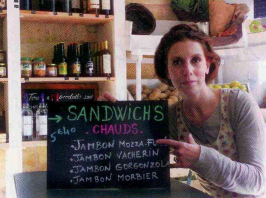 SANDWICH'S
→ .CHAUDS.
5€40
• JAMBON MOZZA-FU
• JAMBON VACHERIN
• JAMBON GORGONZOLA
• JAMBON MORBIER